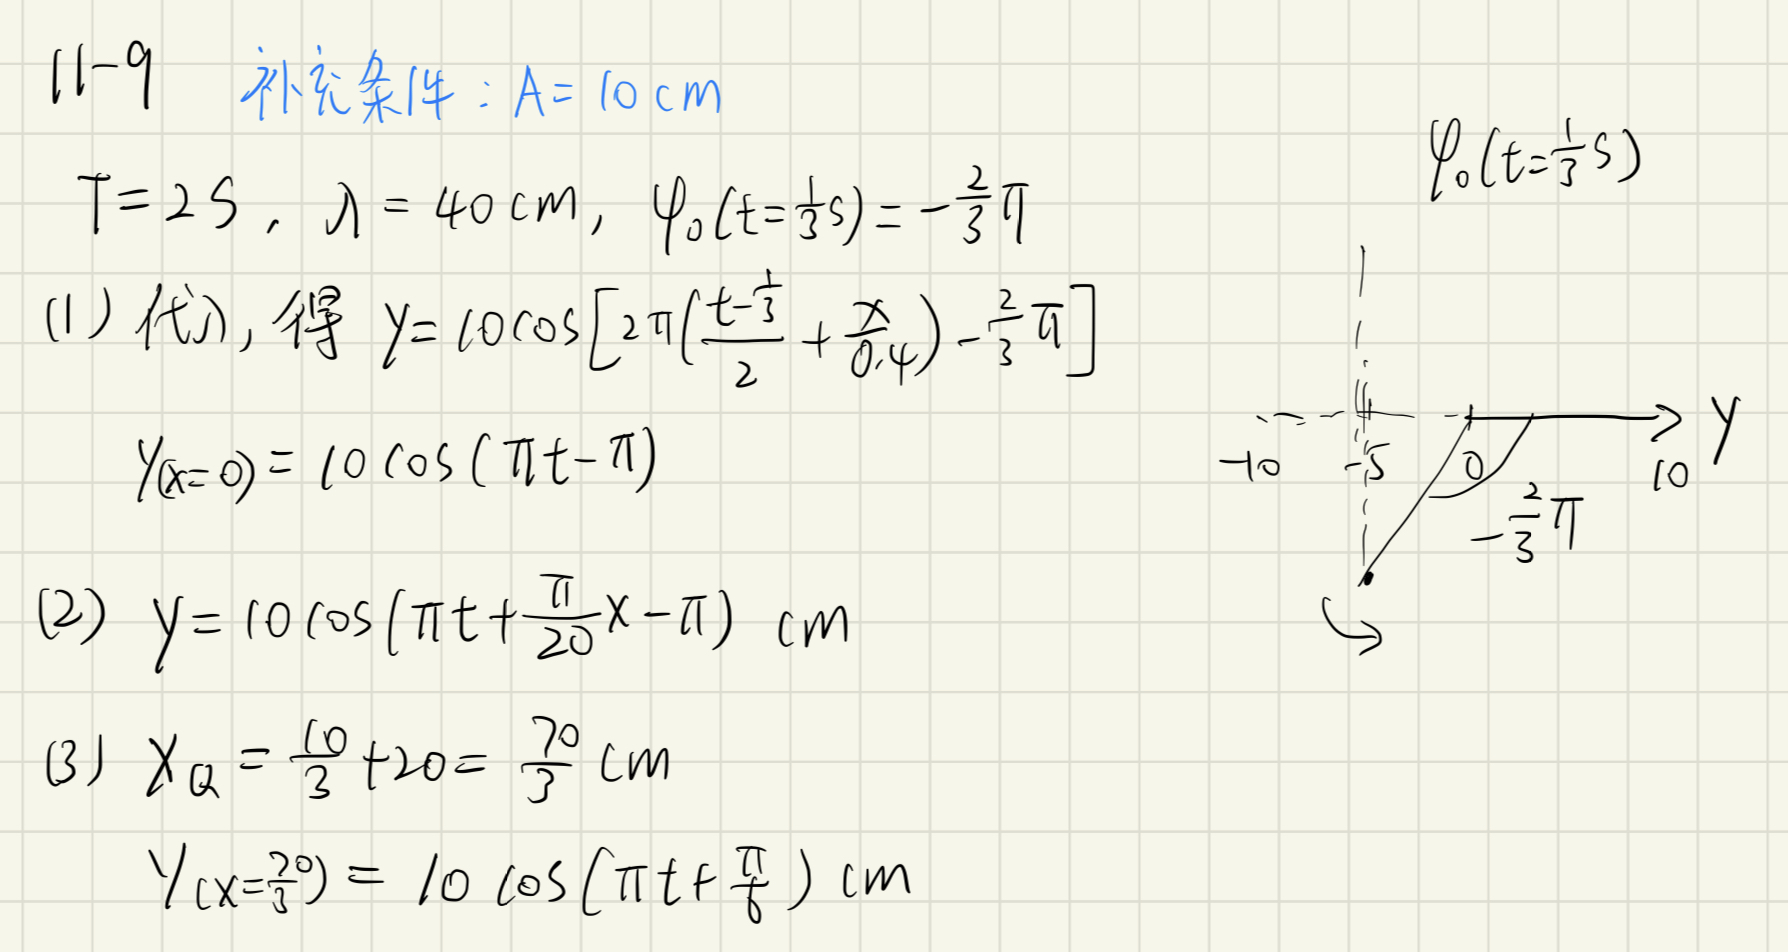 11-9 补充条件：A=10cm
T=2S，λ=40cm, φ₀(t=1/3s)=-2/3π
(1) 代入, 得 y=10cos[2π((t-1/3)/2+x/0.4)-2/3π]
y(x=0)=10cos(πt-π)
(2) y=10cos(πt+π/20x-π) cm
(3) X_Q=10/3+20=70/3 cm
y(x=70/3)=10cos(πt+π/6) cm
φ₀(t=1/3s)
y
-10 -5 0 10
-2/3π